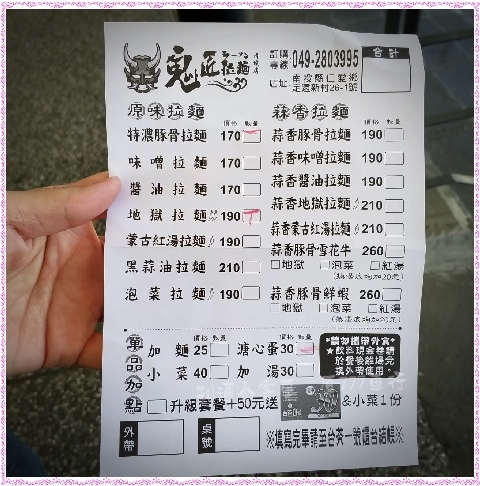 鬼匠拉麵
訂購專線 049-2803995
地址: 南投縣仁愛鄉定遠新村26-1號
合計
原味拉麵
價格 數量
特濃豚骨拉麵 170
味噌拉麵 170
醬油拉麵 170
地獄拉麵 190
蒙古紅湯拉麵 190
黑蒜油拉麵 210
泡菜拉麵 190
蒜香拉麵
價格 數量
蒜香豚骨拉麵 190
蒜香味噌拉麵 190
蒜香醬油拉麵 190
蒜香地獄拉麵 210
蒜香蒙古紅湯拉麵 210
蒜香豚骨雪花牛 260
□地獄 □泡菜 □紅湯
蒜香豚骨鮮蝦 260
□地獄 □泡菜 □紅湯
單品加點
價格 數量 價格 數量
加麵 25 溏心蛋 30
小菜 40 加湯 30
*請勿攜帶外食*
升級套餐+50元送
&小菜1份
外帶
桌號
※填寫完畢請至台茶一號櫃台結帳※